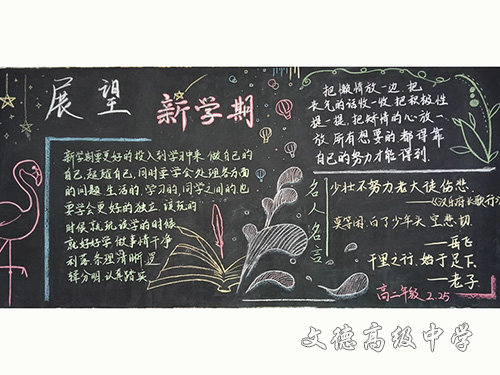 展望
新学期
新学期要更好的投入到学习中来 做自己的
自己,超越自己,同时要学会处理各方面
的问题 生活的,学习的,同学之间的也
要学会更好的独立 该玩的
时候就玩 该学的时候
就好好学 做事情干净
利落 条理清晰 逻
辑分明 认真踏实
把懒惰放一边,把
丧气的话收一收 把积极性
提一提,把矫情的心放一
放,所有想要的都得靠
自己的努力才能得到.
名人名言
少壮不努力老大徒伤悲.
——《汉乐府·长歌行》
莫等闲,白了少年头,空悲切
——岳飞
千里之行,始于足下.
——老子
高二年级 2.25
文德高级中学